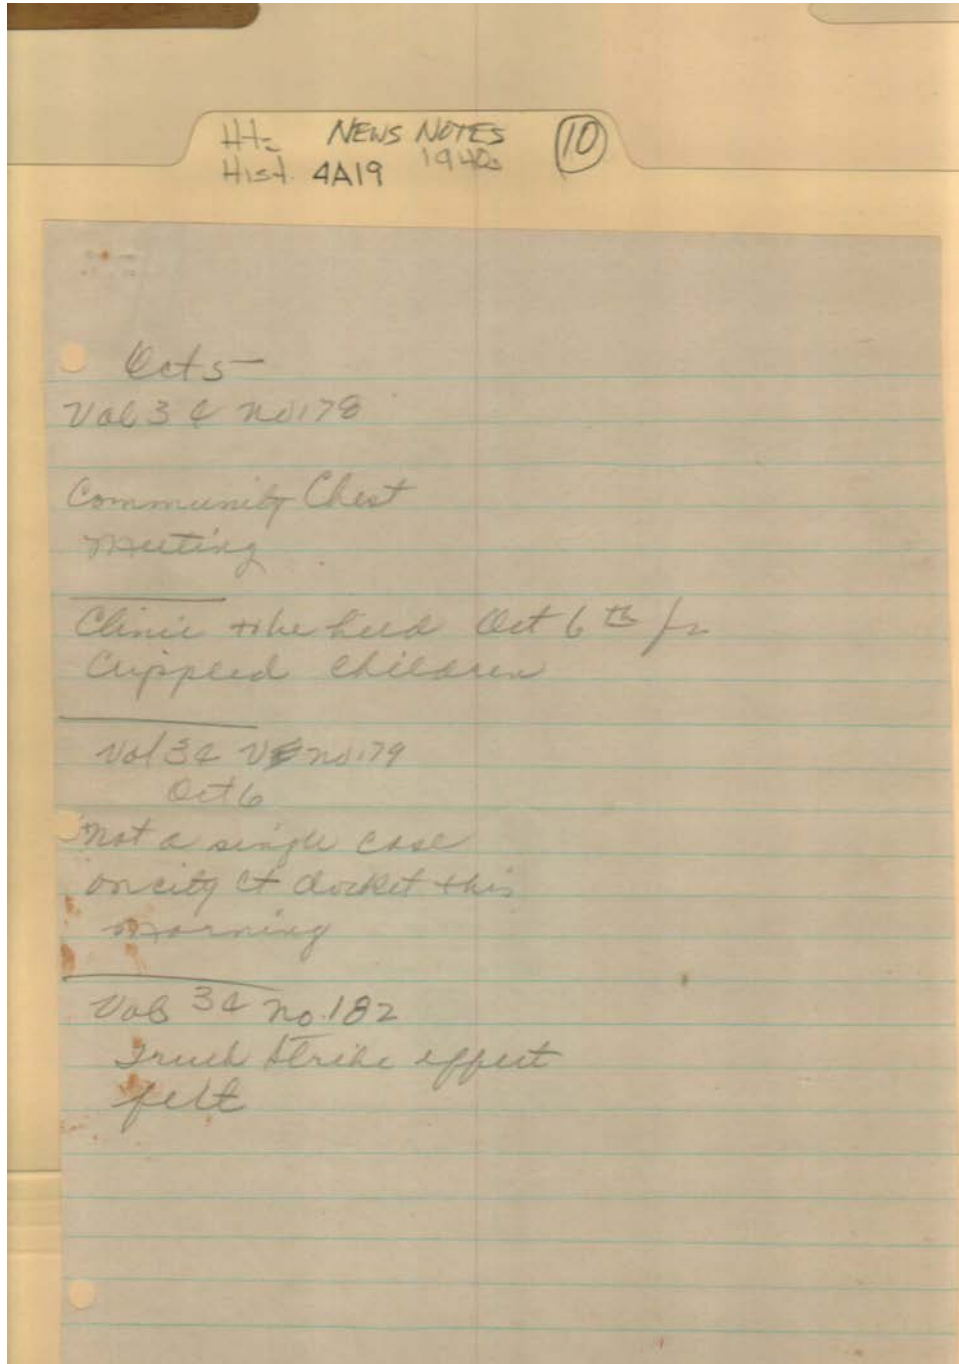 Ht= NEWS NOTES (10)
Hist. 4A19 1940s
Oct 5 —
Vol 34 No 178
Community Chest
Meeting
Clinic to be held Oct 6th for
Crippled Children
Vol 34 no 179
Oct 6
Not a single case
on city ct docket this
morning
Vol 34 no. 182
Truck Strike effect
felt